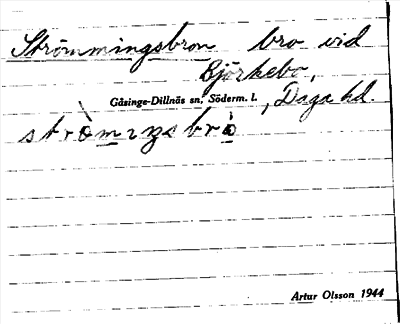 Strömmingsbron bro vid
Björkebo,
Gåsinge-Dillnäs sn, Söderm. l., Daga hd.
strò̈mıŋsbrò
Artur Olsson 1944